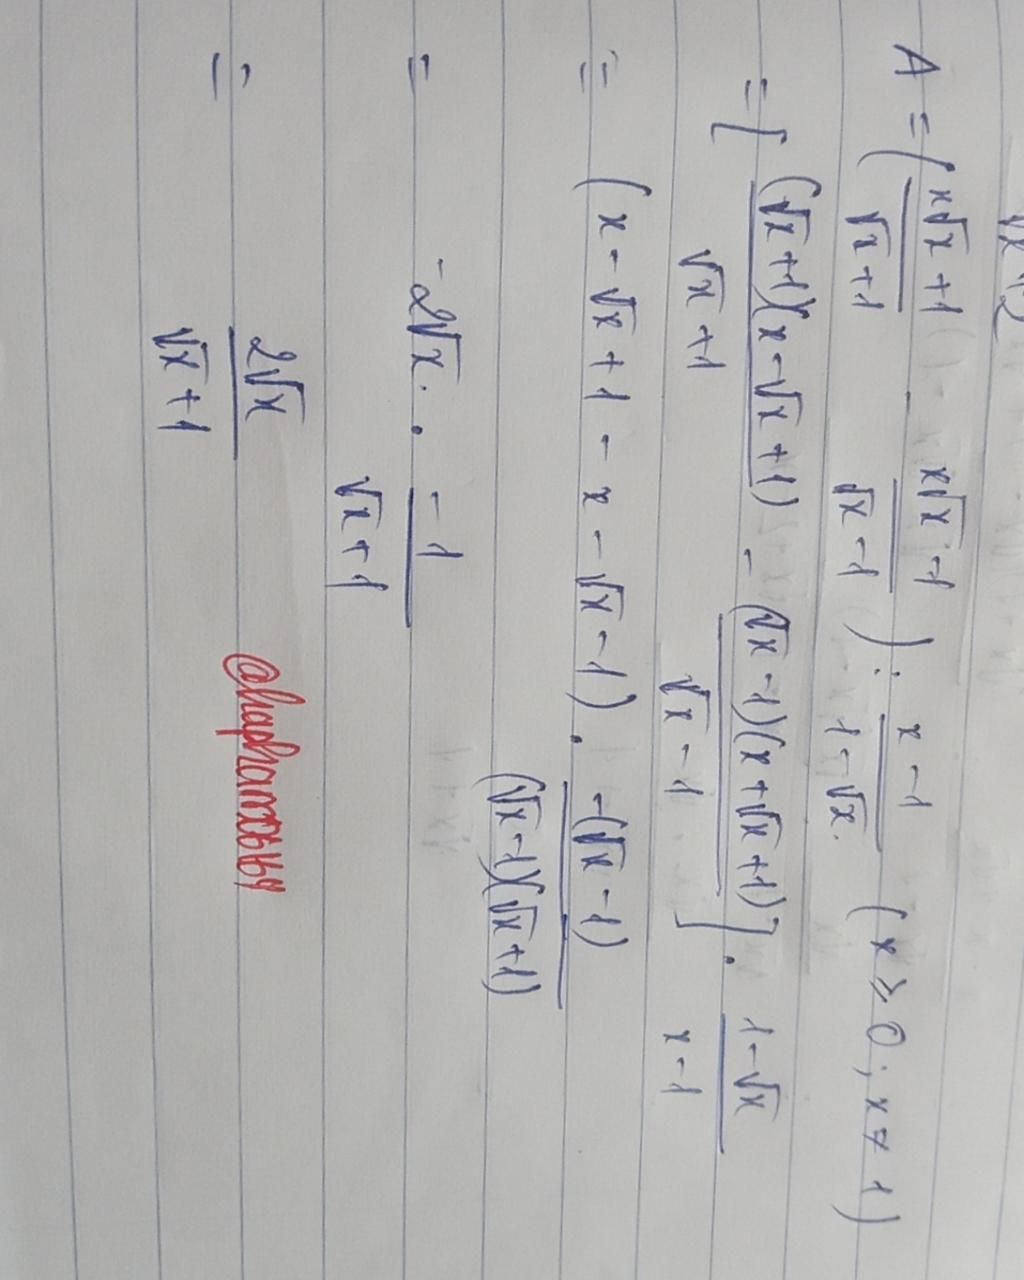 A = ( (x√x + 1)/(√x + 1) - (x√x - 1)/(√x - 1) ) : (x - 1)/(1 - √x). (x ≥ 0 ; x ≠ 1)
= [ ((√x + 1)(x - √x + 1))/(√x + 1) - ((√x - 1)(x + √x + 1))/(√x - 1) ] . (1 - √x)/(x - 1)
= (x - √x + 1 - x - √x - 1) . (-(√x - 1))/((√x - 1)(√x + 1))
= -2√x . (-1)/(√x + 1)
= (2√x)/(√x + 1)